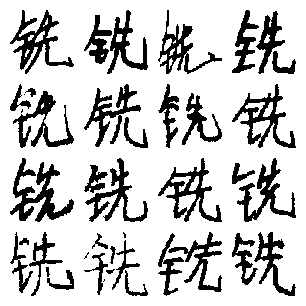 铣铣铣铣
铣铣铣铣
铣铣铣铣
铣铣铣铣